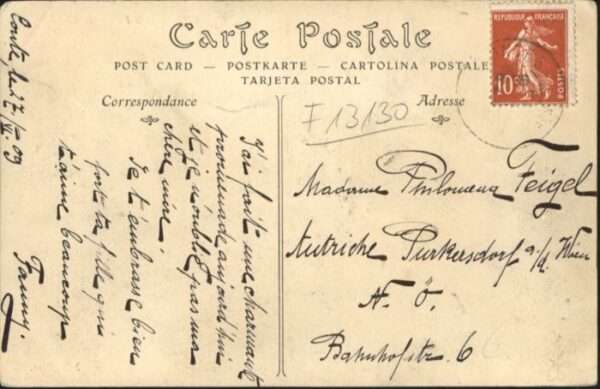 Carte Postale
POST CARD — POSTKARTE — CARTOLINA POSTALE
TARJETA POSTAL
Correspondance
Adresse
REPUBLIQUE FRANÇAISE
10c
POSTES
F 13130
J'ai fait une charmante
promenade aujourd'hui
et je n'oublie pas ma
chère mère
Je t'embrasse bien
fort ta fille qui
t'aime beaucoup
Fanny.
09
Madame Philomena Feigel
Autriche Purkersdorf a/d. Wien
N. Ö.
Bahnhofstr. 6